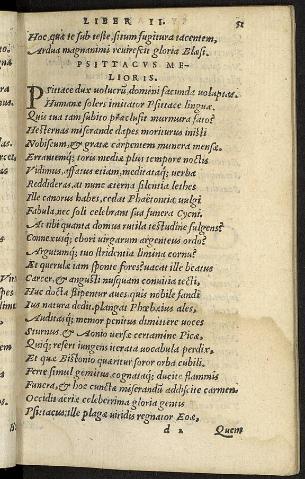 LIBER II. 51
Hoc, quæ te sub teste situm fugitura tacentem,
Ardua magnanimi reuirescit gloria Blæsi.
PSITTACVS ME-
LIORIS.
Psittace dux uolucrũ, domini facunda uoluptas
Humanæ solers imitator Psittace linguæ.
Quis tua tam subito præclusit murmura fato?
Hesternas miserande dapes moriturus inisti
Nobiscum, & gratæ carpentem munera mensæ.
Errantemq; toris mediæ plus tempore noctis
Vidimus, affatus etiam, meditataq; uerba
Reddideras, at nunc æterna silentia lethes
Ille canorus habes, cedat Phaëtontia uulgi
Fabula, nec soli celebrant sua funera Cycni.
At tibi quanta domus rutila testudine fulgens?
Connexusq; ebori uirgarum argenteus ordo?
Argutumq; tuo stridentia limina cornu?
Et querulæ iam sponte fores? uacat ille beatus
Carcer, & angusti nusquam conuitia tecti,
Huc docta stipentur aues quis nobile fandi
Ius natura dedit, plangat Phœbeius ales,
Auditasq; memor penitus dimittere uoces
Sturnus, & Aonio uersæ certamine Picæ,
Quiq; refert iungens iterata uocabula perdix,
Et quæ Bistonio queritur soror orba cubili.
Ferte simul gemitus, cognataq; ducite flammis
Funera, & hoc cunctæ miserandũ addiscite carmen.
Occidit aëriæ celeberrima gloria gentis
Psittacus: ille plagæ uiridis regnator Eoæ,
d 2 Quem